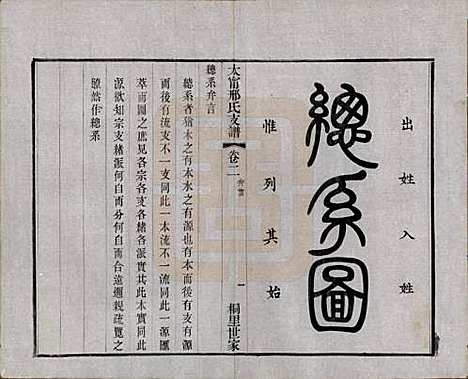 出姓入姓
總系圖
惟列其始
太甯邢氏支譜 卷二 弁言 一 桐里世家
總系弁言
總系者猶木水之有源也有本而後有支有源
而後有流支不一支同此一本流不一流同此一源匯
萃而圖之庶見各宗各支各緒各派實共此本實同此
源欲知宗支緒派何自而分何自而合遠邇親疏覽之
瞭然作總系